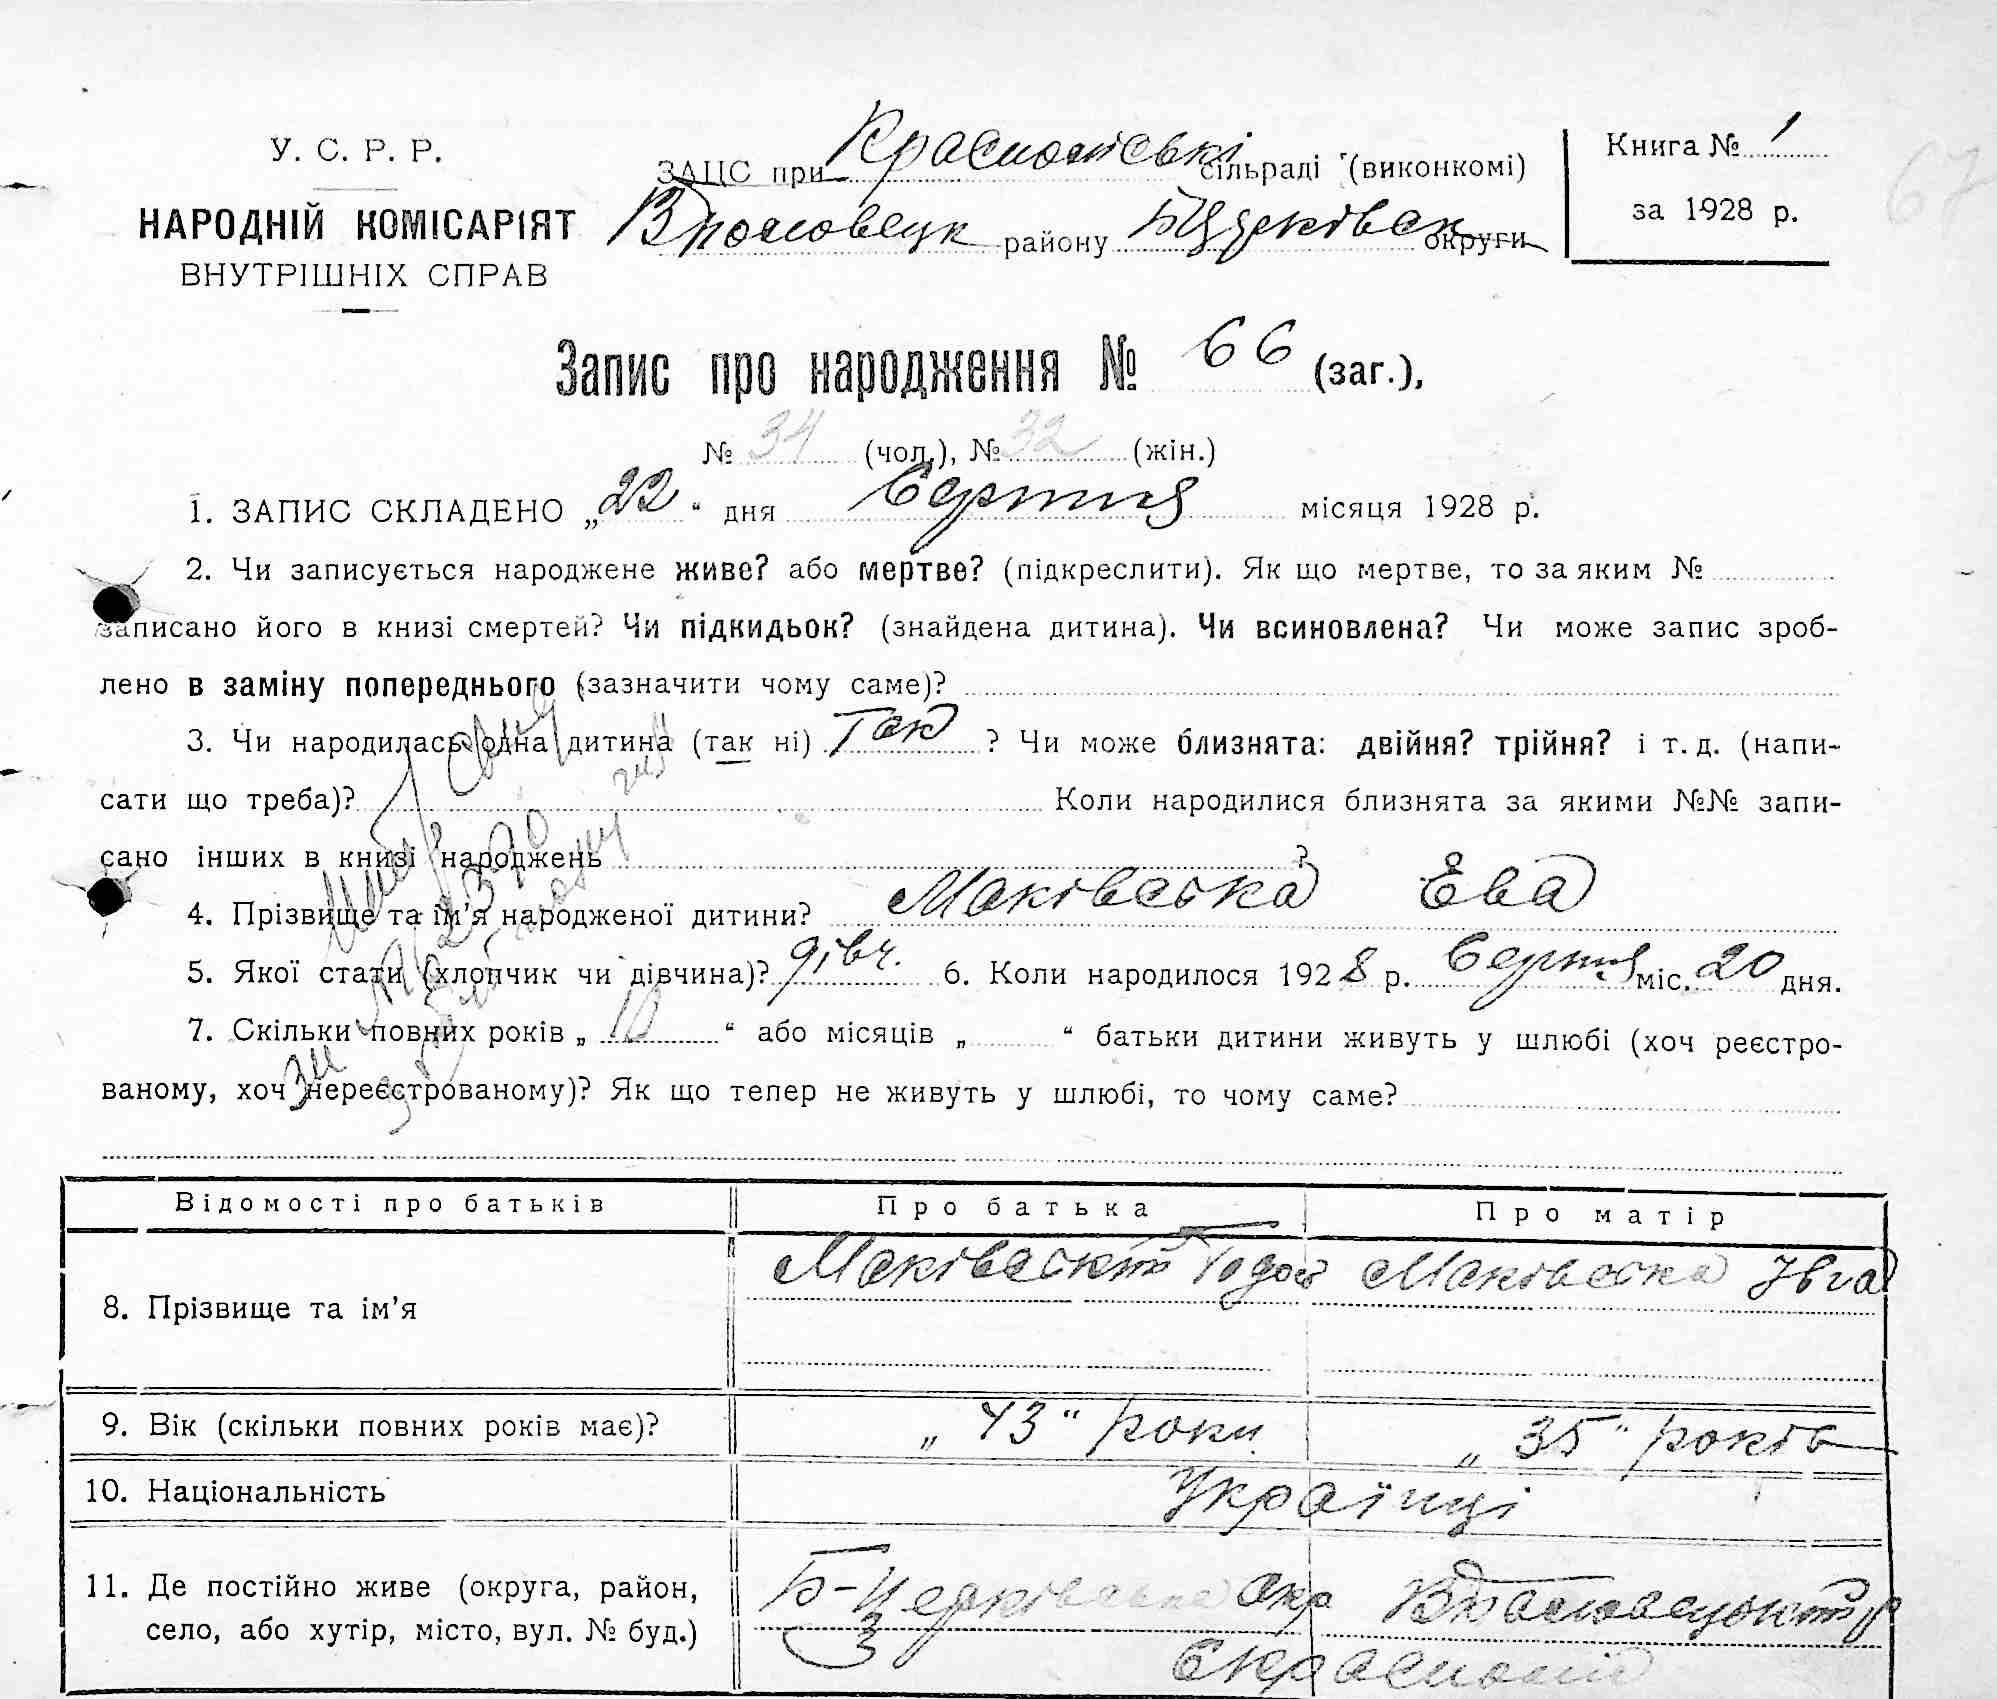 У. С. Р. Р.
НАРОДНІЙ КОМІСАРІЯТ
ВНУТРІШНІХ СПРАВ
ЗАЦС при Красноліські сільраді (виконкомі)
району округи
Книга № 1
за 1928 р.
67
Запис про народження № 66 (заг.),
№ 34 (чол.), № 32 (жін.)
1. ЗАПИС СКЛАДЕНО „22“ дня Серпня місяця 1928 р.
2. Чи записується народжене живе? або мертве? (підкреслити). Як що мертве, то за яким №
записано його в книзі смертей? Чи підкидьок? (знайдена дитина). Чи всиновлена? Чи може запис зроб-
лено в заміну попереднього (зазначити чому саме)?
3. Чи народилась одна дитина (так ні) Так ? Чи може близнята: двійня? трійня? і т. д. (напи-
сати що треба)? Коли народилися близнята за якими №№ запи-
сано інших в книзі народжень ?
4. Прізвище та ім’я народженої дитини? Маківська Ева
5. Якої стати (хлопчик чи дівчина)? дівч. 6. Коли народилося 1928 р. Серпня міс. 20 дня.
7. Скільки повних років „ 10 “ або місяців „ “ батьки дитини живуть у шлюбі (хоч реєстро-
ваному, хоч нереєстрованому)? Як що тепер не живуть у шлюбі, то чому саме?
Відомості про батьків Про батька Про матір
8. Прізвище та ім’я Маківський Маківська Івга
9. Вік (скільки повних років має)? „43“ роки „35“ років
10. Національність Українці
11. Де постійно живе (округа, район,
село, або хутір, місто, вул. № буд.)
Б-Церківська окр